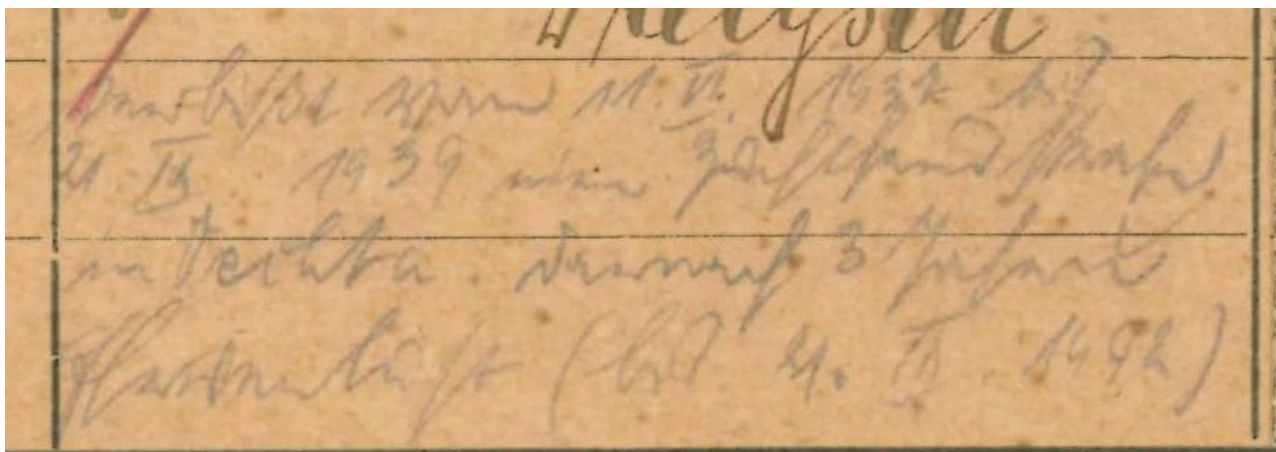 verbüßt vom 21. VI. 1937 bis
21. IX. 1939 eine Zuchthausstrafe
in Vechta. Darnach 3 Jahre
Ehrverlust (bis 21. IX. 1942)